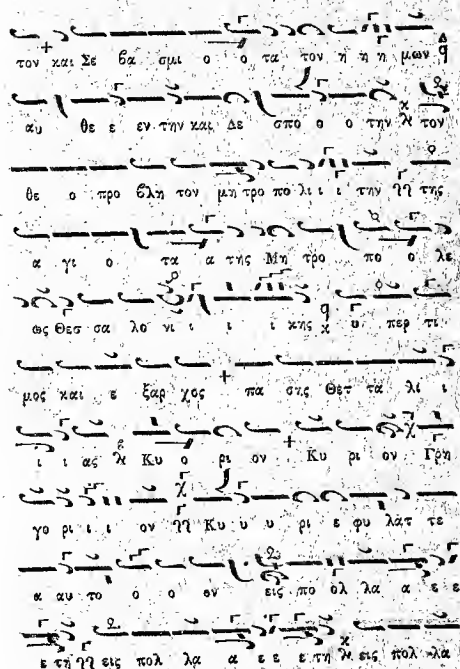 τον και Σε βα σμι ο ο τα τον η η η μων
αυ θε ε εν την και Δε σπο ο ο την τον
θε ο προ βλη τον μη τρο πο λι ι ι την της
α γι ο τα α της Μη τρο πο ο λε
ως Θεσ σα λο νι ι ι ι κης υ περ τι
μος και ε ξαρ χος πα σης Θετ τα λι ι
ι ι ας Κυ ο ρι ον Κυ ρι ον Γρη
γο ρι ι ι ον Κυ υ υ ρι ε φυ λατ τε
α αυ το ο ο ον εις πο ολ λα α ε ε
ε τη εις πολ λα α ε ε ε τη εις πολ λα